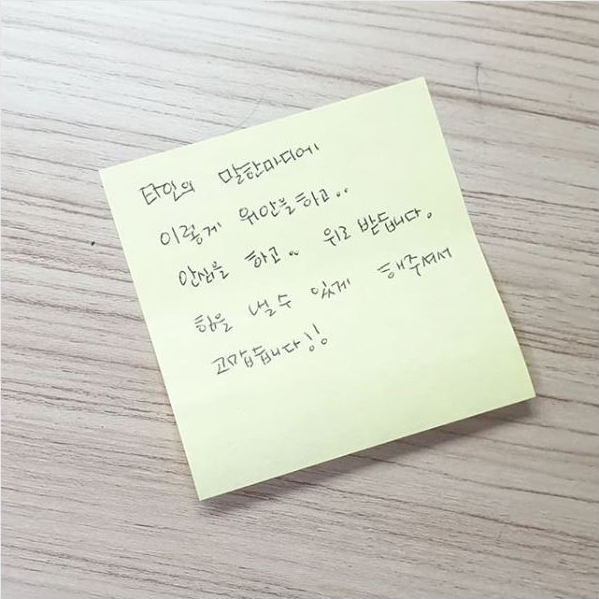 타인의 말한마디에
이렇게 위안을하고..
안심을 하고.. 위로 받습니다.
힘을 낼수 있게 해주셔서
고맙습니다!!